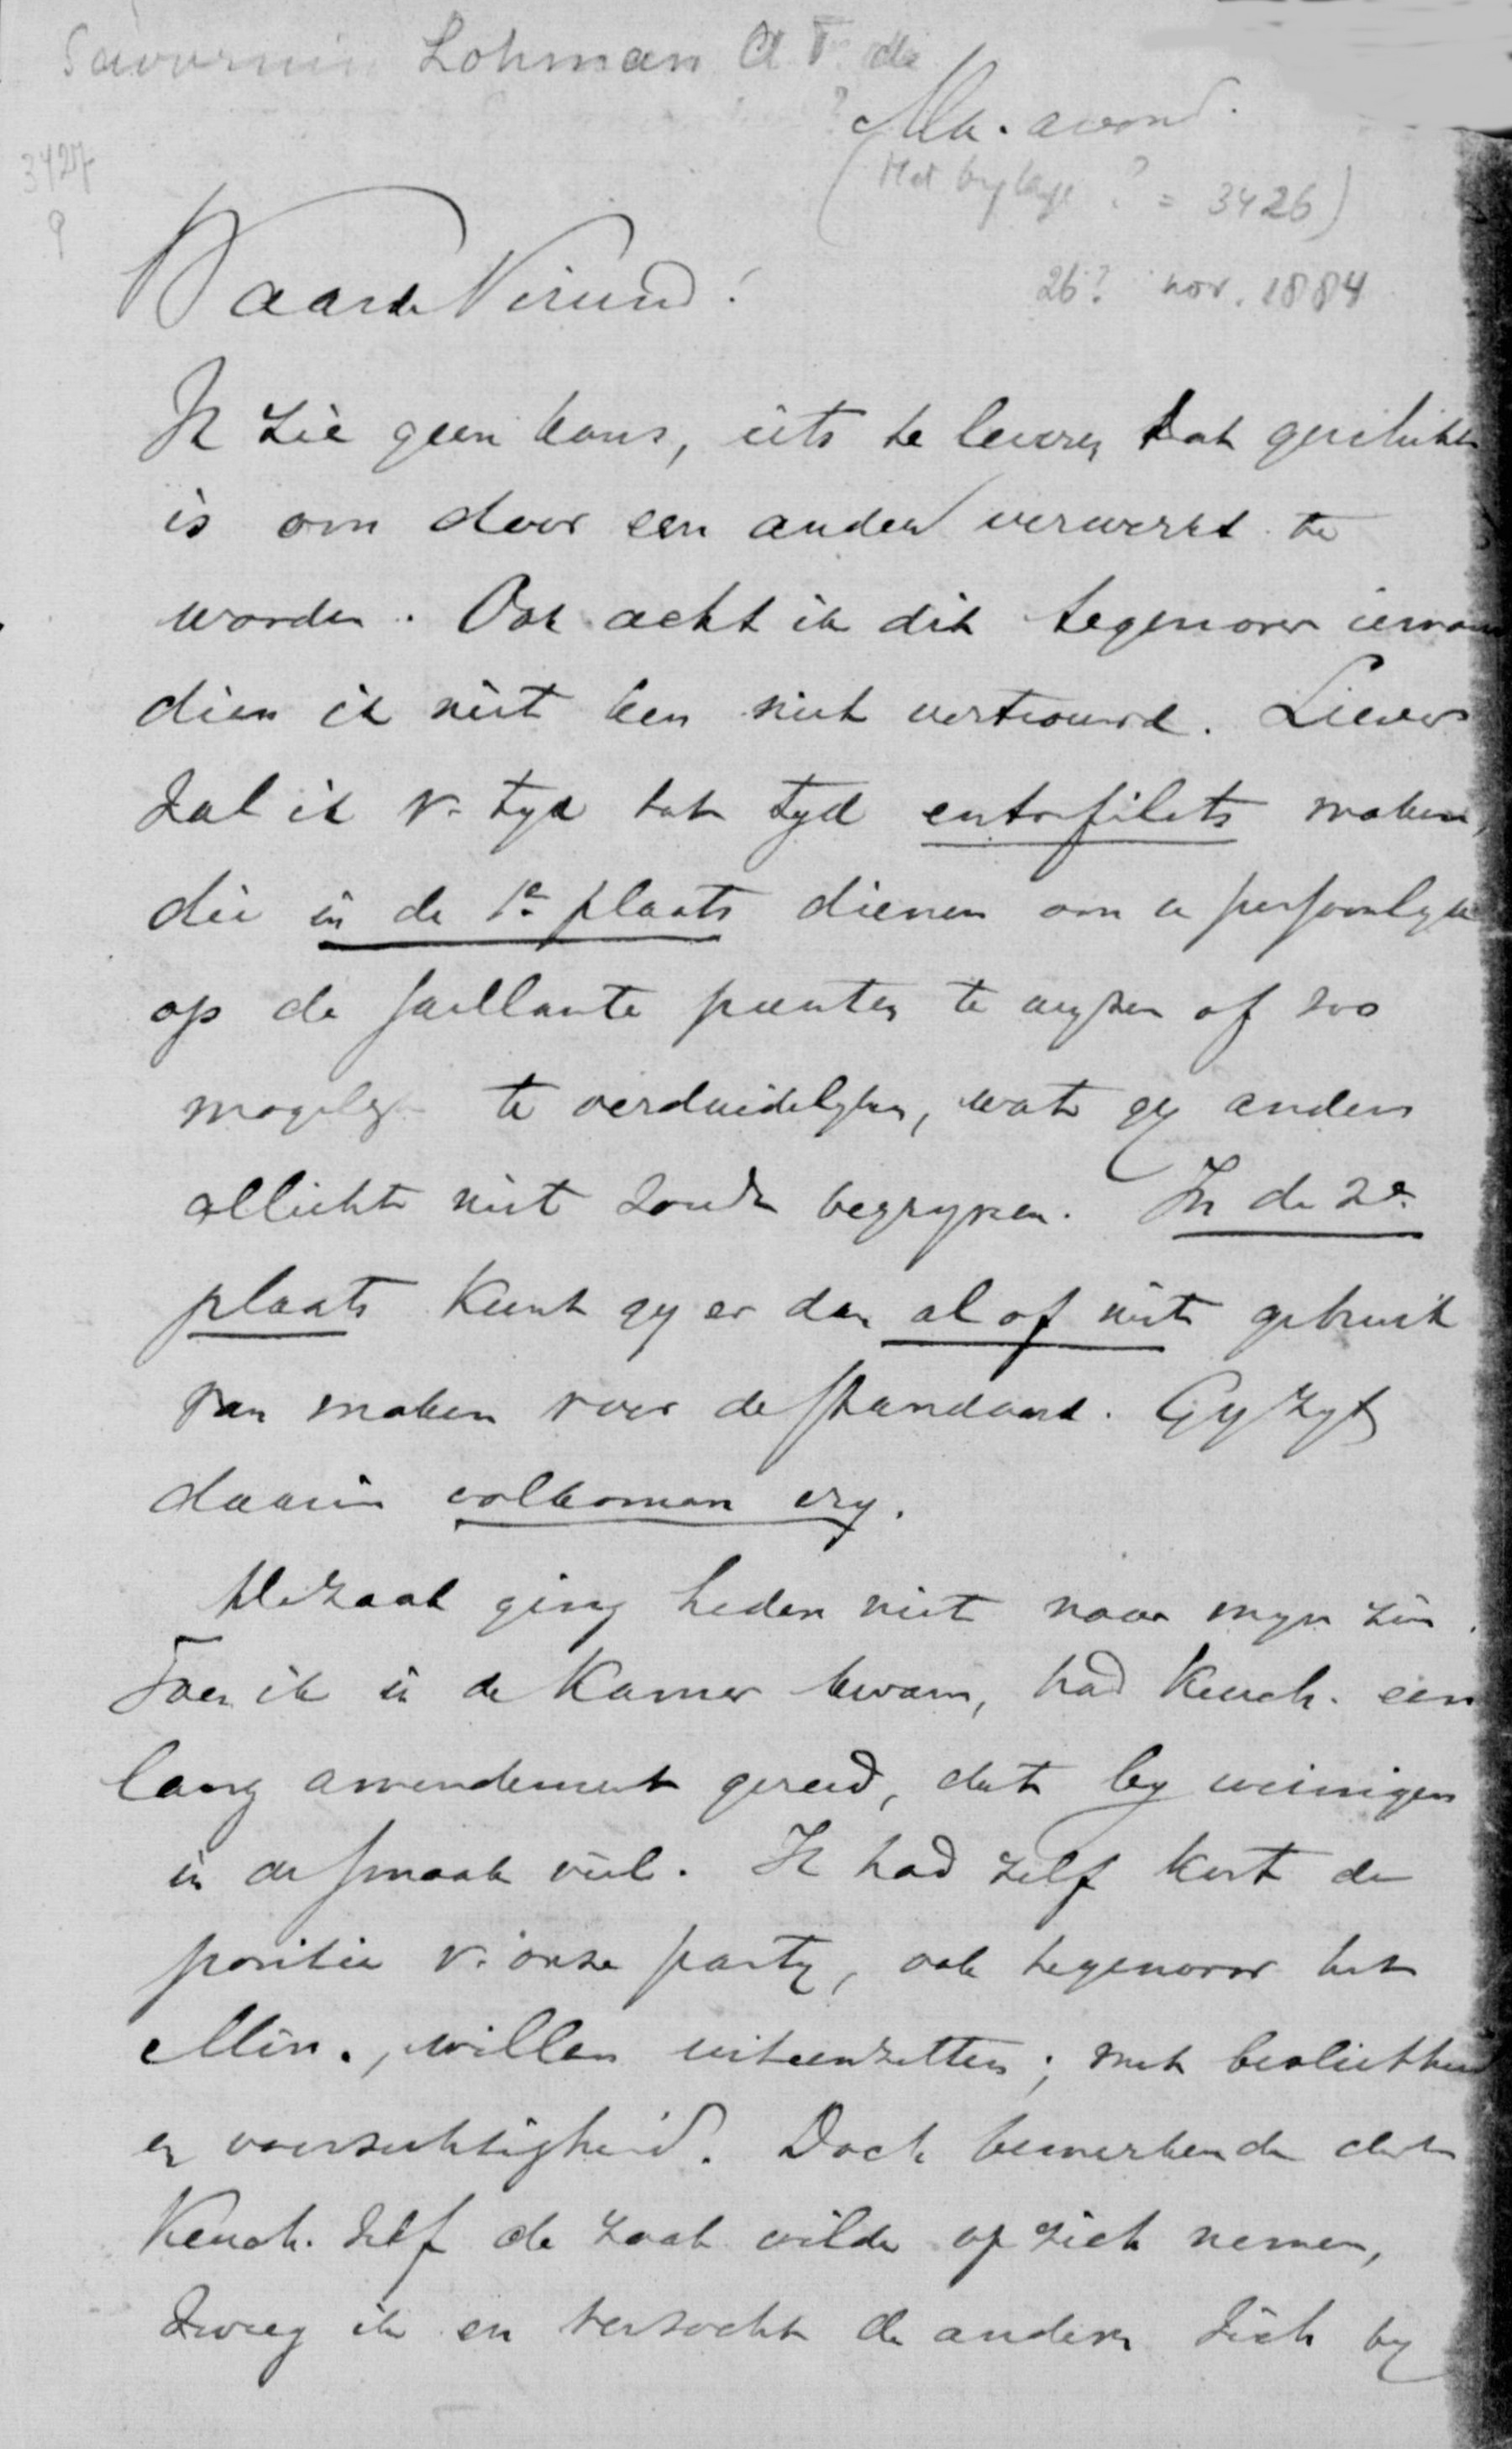 Savornin Lohman A F de
? Ma. avond.
3427
(Met bijlage ? = 3426)
?
26? nov. 1884
Waarde Vriend!
Ik zie geen kans, iets te leveren dat geschikt
is om door een ander verwerkt te
worden. Ook acht ik dit tegenover iemand
dien ik niet ken niet vertrouwd. Liever
zal ik v. tyd tot tyd entrefilets maken,
die in de 1e plaats dienen om u persoonlyk
op de saillante punten te wyzen of zoo
mogelyk te verduidelyken, wat gy anders
allicht niet zoudt begrypen. In de 2e
plaats kunt gy er dan al of niet gebruik
van maken voor de Standaard. Gy zyt
daarin volkomen vry.
De zaak ging heden niet naar myn zin.
Toen ik in de Kamer kwam, had Keuch. een
lang amendement gereed, dat by weinigen
in de smaak viel. Ik had zelf kort de
positie v. onze party, ook tegenover het
Min., willen uiteenzetten; met beslistheid
en voorzichtigheid. Doch bemerkende dat
Keuch. zelf de zaak wilde op zich nemen,
zweeg ik en verzocht de anderen zich by